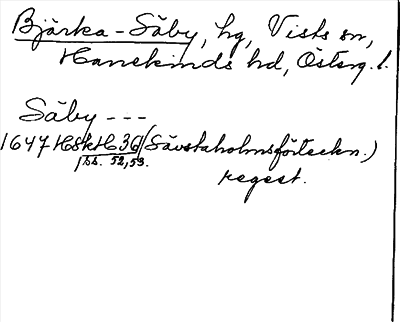 Bjärka-Säby, hg, Vists sn,
Hanekinds hd, Österg. l.
Säby ---
1647 HSkH 36 (Sävstaholmsförteckn.)
ss. 52, 53.
regest.